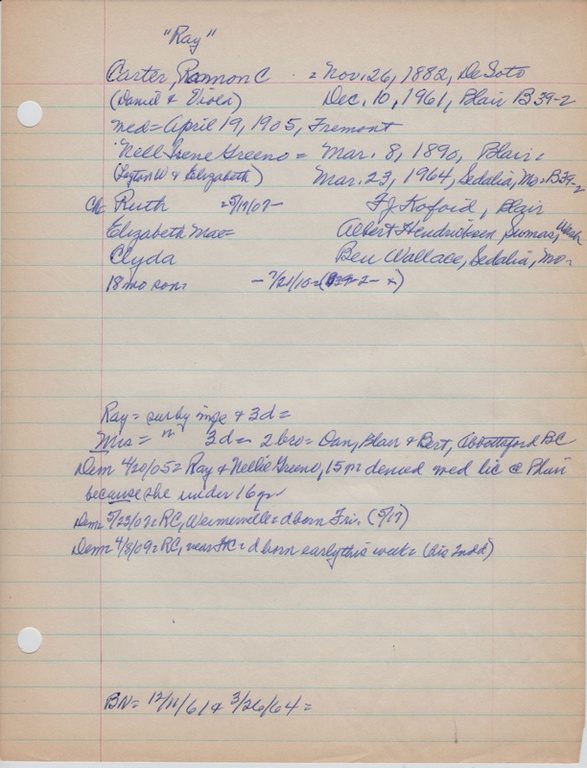 "Ray"
Carter, Ramon C. = Nov. 26, 1882, De Soto
(Daniel & Viola) Dec. 10, 1961, Blair B39-2
med = April 19, 1905, Fremont
Nell Irene Greeno = Mar. 8, 1890, Blair =
(Layton W & Elizabeth) Mar. 23, 1964, Sedalia, Mo. B39-2
Ch = Ruth =5/17/07- F J Kofoid, Blair
Elizabeth Mae= Albert Hendricksen, Sumas, Wash
Clyda Ben Wallace, Sedalia, Mo.
18 mo son = - 7/21/10 = (B39-2- x)
Ray = sur by & 3d =
Mrs = " 3d = 2 bro = Dan, Blair & Bert, Abbottsford BC
Dem 4/20/05 = Ray & Nellie Greeno, 15 yr denied wed lic @ Blair
because she under 16 yr
Dem = 5/23/07 = RC, = d born Fri. (5/17)
Dem = 4/8/09 = RC, near FtC = d born early this week = (his 2nd d)
BN = 12/11/61 & 3/26/64 =